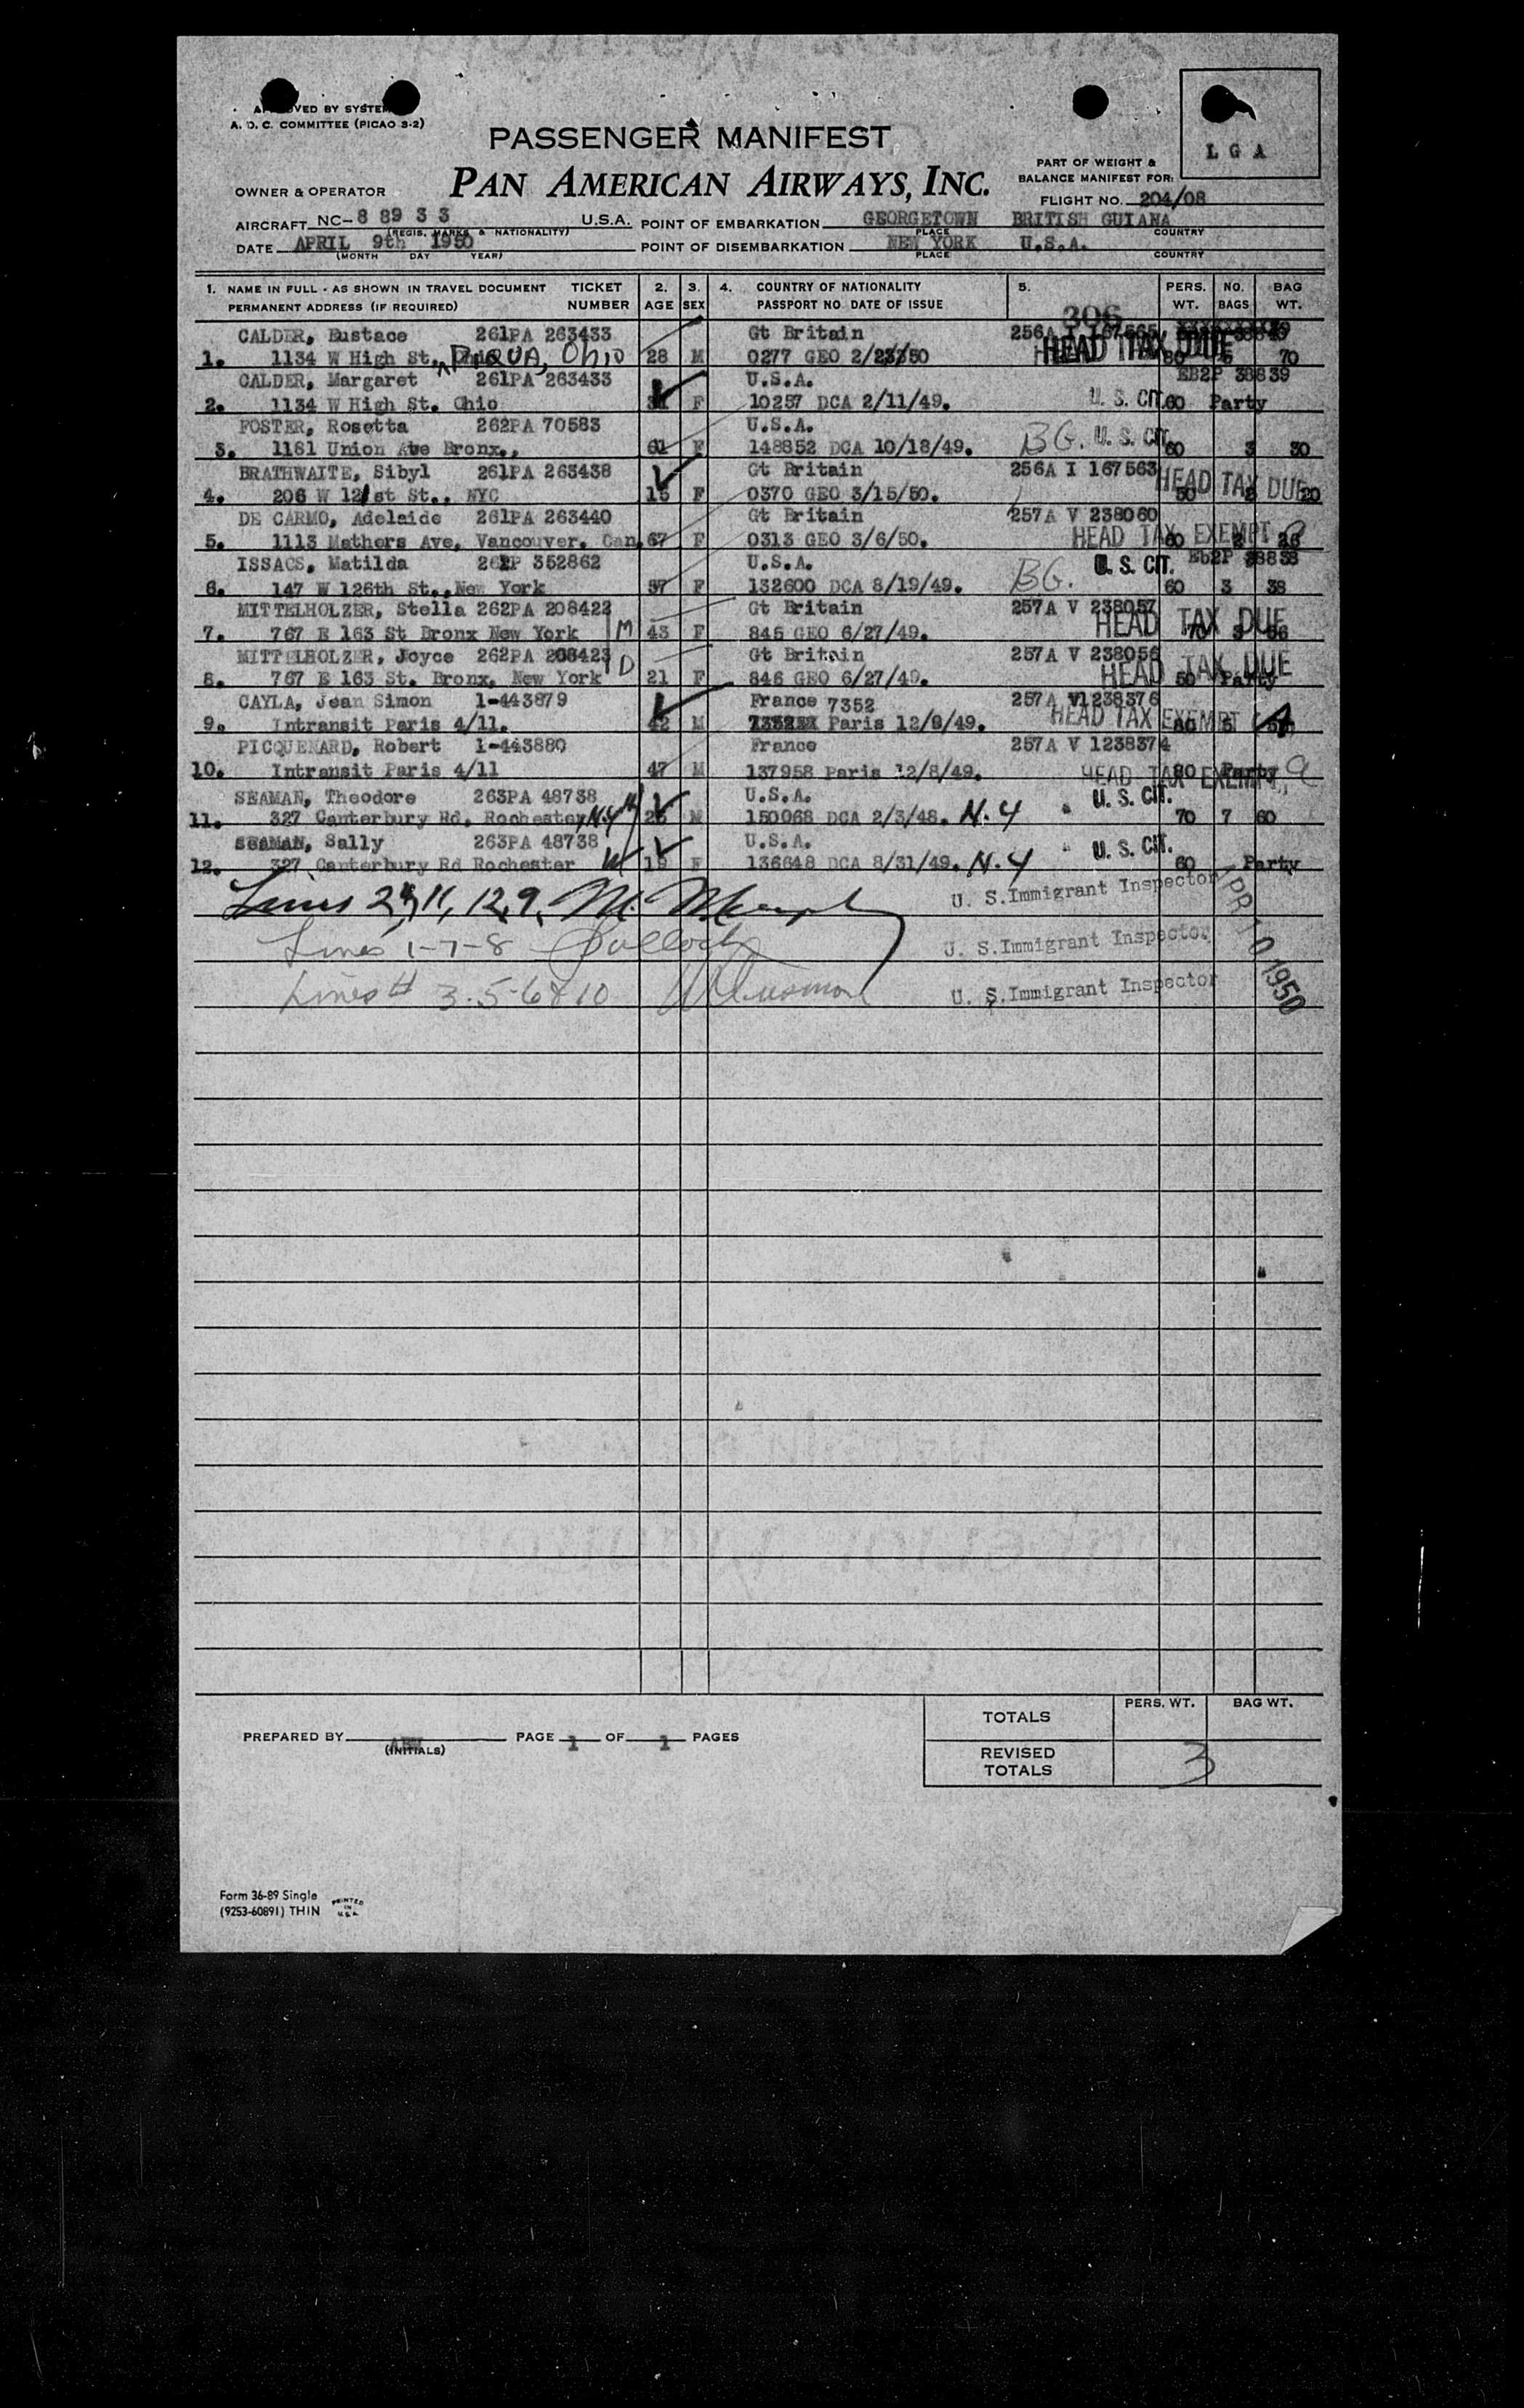 APPROVED BY SYSTEM
A. O. C. COMMITTEE (PICAO 3-2)
PASSENGER MANIFEST
L G A
PART OF WEIGHT &
BALANCE MANIFEST FOR:
OWNER & OPERATOR PAN AMERICAN AIRWAYS, INC.
FLIGHT NO. 204/08
AIRCRAFT NC-8 89 3 3 U.S.A. POINT OF EMBARKATION GEORGETOWN BRITISH GUIANA
(REGIS. MARKS & NATIONALITY) PLACE COUNTRY
DATE APRIL 9th 1950 POINT OF DISEMBARKATION NEW YORK U.S.A.
(MONTH DAY YEAR) PLACE COUNTRY
1. NAME IN FULL - AS SHOWN IN TRAVEL DOCUMENT TICKET 2. 3. 4. COUNTRY OF NATIONALITY 5. PERS. NO. BAG
PERMANENT ADDRESS (IF REQUIRED) NUMBER AGE SEX PASSPORT NO. DATE OF ISSUE WT. BAGS WT.
306
CALDER, Eustace 261PA 263433 Gt Britain 256A I 167565
1. 1134 W High St. PIQUA, OHIO 28 M 0277 GEO HEAD TAX DUE 80 5 70
CALDER, Margaret 261PA 263433 U.S.A. EB2P 38839
2. 1134 W High St. Ohio F 10257 DCA 2/11/49. U. S. CIT. 60 Party
FOSTER, Rosetta 262PA 70583 U.S.A.
3. 1181 Union Ave Bronx., 61 F 148852 DCA 10/18/49. BG. U. S. CIT. 60 3 30
BRATHWAITE, Sibyl 261PA 263438 Gt Britain 256A I 167563
4. 206 W 121st St., NYC 15 F 0370 GEO 3/15/50. HEAD TAX DUE 50 2 20
DE CARMO, Adelaide 261PA 263440 Gt Britain 257A V 238060
5. 1113 Mathers Ave, Vancouver. Can. 67 F 0313 GEO 3/6/50. HEAD TAX EXEMPT 60 2 26
ISSACS, Matilda 262P 352862 U.S.A. U. S. CIT. EB2P 38838
6. 147 W 126th St., New York 57 F 132600 DCA 8/19/49. BG. 60 3 38
MITTELHOLZER, Stella 262PA 208422 Gt Britain 257A V 238057
7. 767 E 163 St Bronx New York M 43 F 845 GEO 6/27/49. HEAD TAX DUE 70 3 56
MITTELHOLZER, Joyce 262PA 208423 Gt Britain 257A V 238056
8. 767 E 163 St. Bronx, New York D 21 F 846 GEO 6/27/49. HEAD TAX DUE 50 Party
CAYLA, Jean Simon 1-443879 France 7352 257A V1238376
9. Intransit Paris 4/11. 42 M Paris 12/8/49. HEAD TAX EXEMPT 80 5
PICQUENARD, Robert 1-443880 France 257A V 1238374
10. Intransit Paris 4/11 47 M 137958 Paris 12/8/49. HEAD TAX EXEMPT 80 Party
SEAMAN, Theodore 263PA 48738 U.S.A. U. S. CIT.
11. 327 Canterbury Rd. Rochester, N.Y. H 26 M 150068 DCA 2/3/48. N.Y 70 7 60
SEAMAN, Sally 263PA 48738 U.S.A. U. S. CIT.
12. 327 Canterbury Rd Rochester W 19 F 136648 DCA 8/31/49. N.Y 60 Party
Lines 2,4,11,12,9. M. Murphy U. S. Immigrant Inspector
Lines 1-7-8 U. S. Immigrant Inspector
Lines # 3-5-6&10 U. S. Immigrant Inspector
APR 10 1950
PERS. WT. BAG WT.
TOTALS
PREPARED BY (INITIALS) PAGE 1 OF 1 PAGES
REVISED TOTALS 3
Form 36-89 Single
(9253-60891) THIN
PRINTED IN U.S.A.